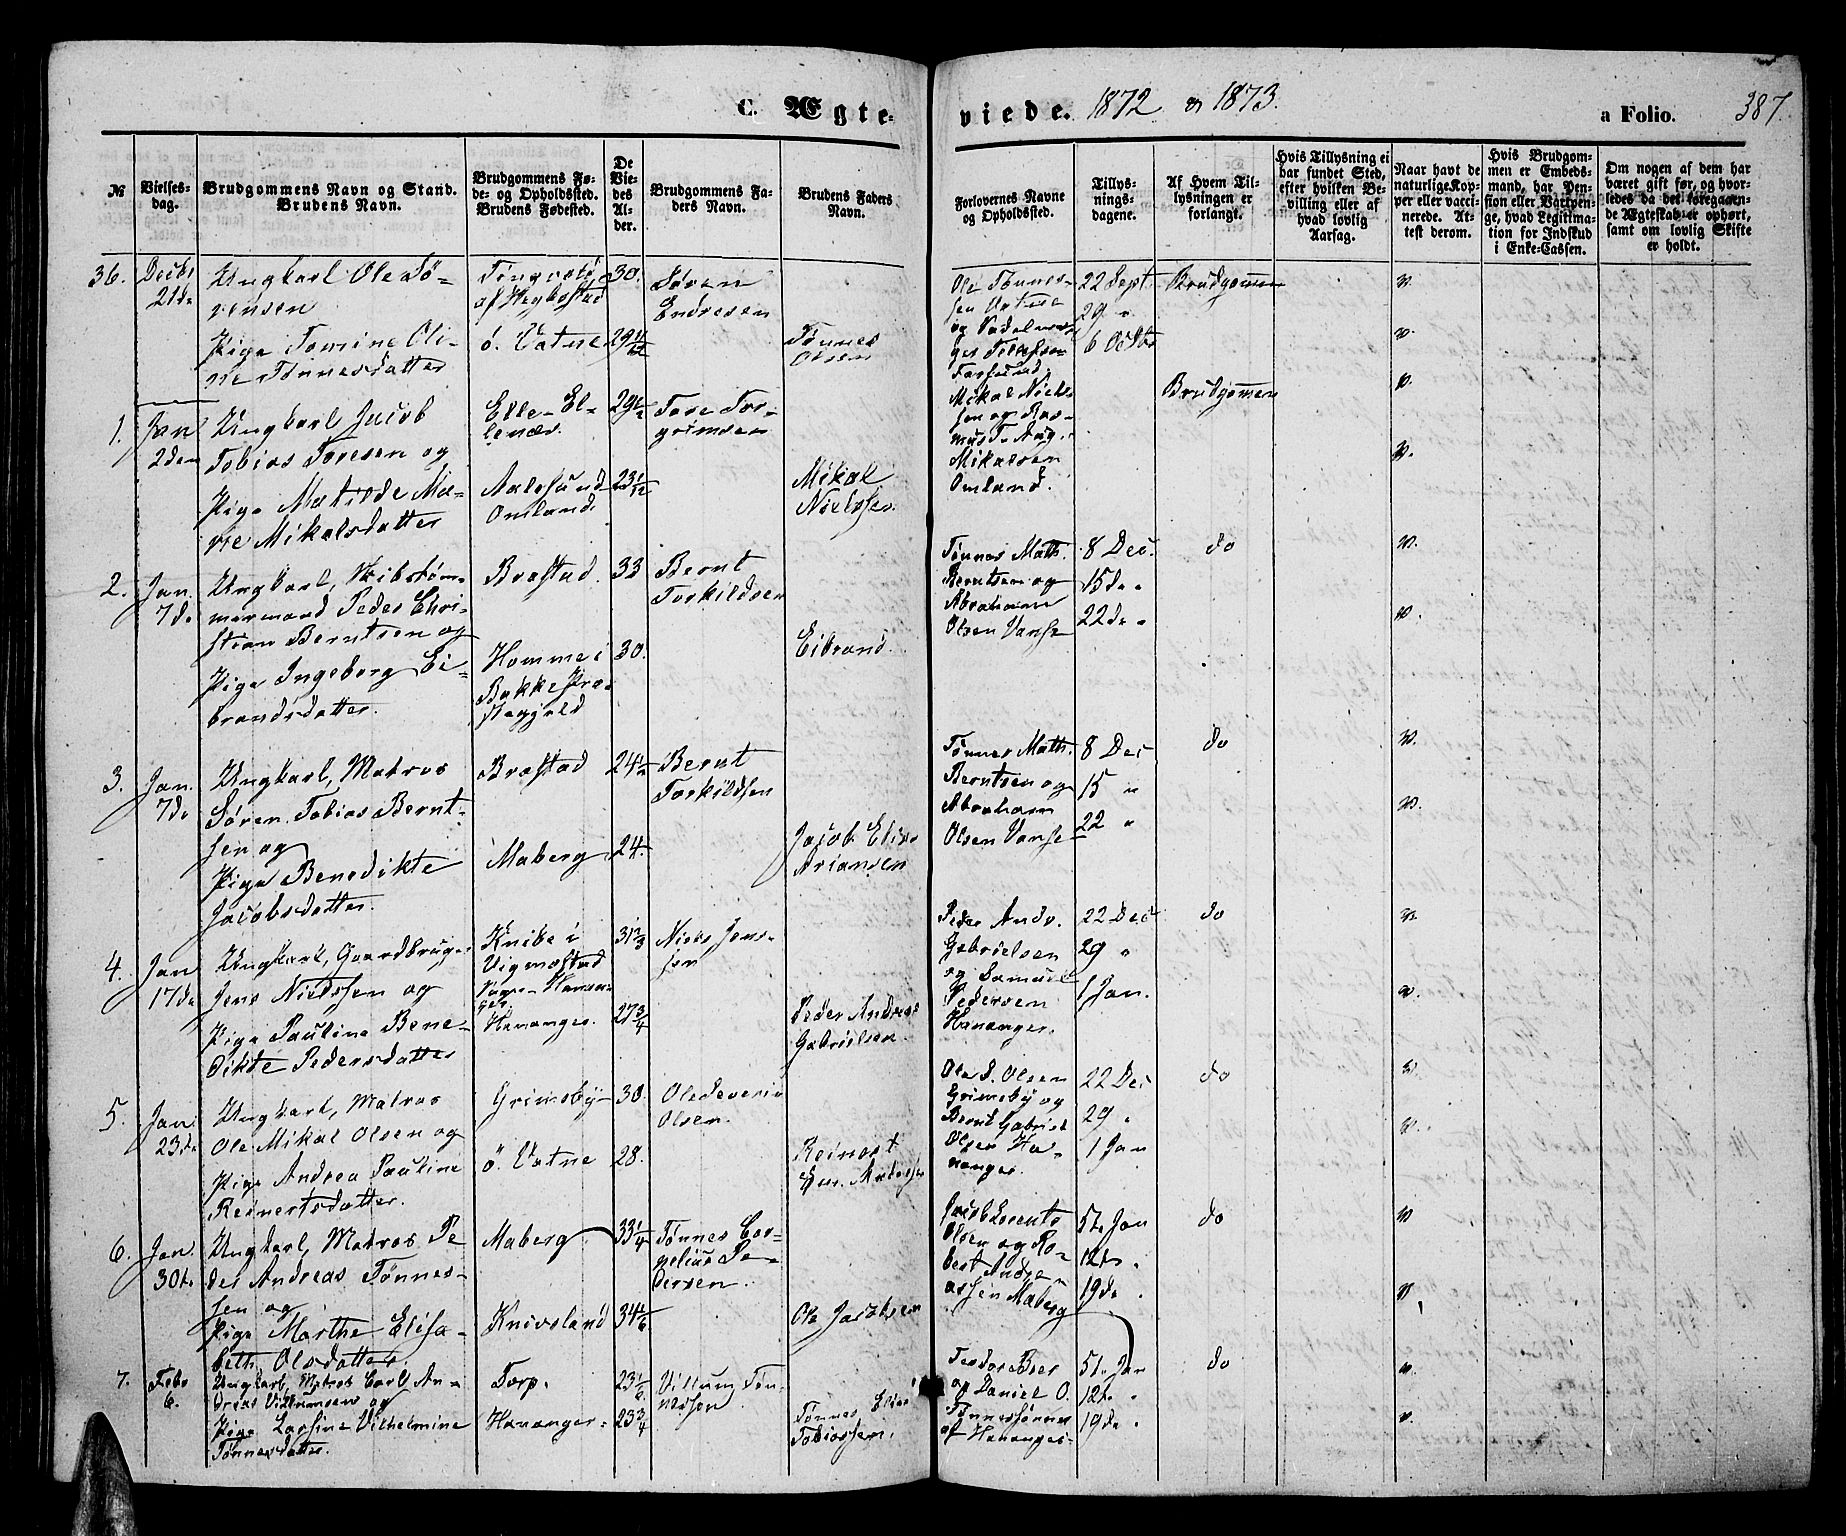 C. Ægte-
viede. 1872 og 1873.
a Folio. 387.
№
Vielses-
dag.
Brudgommens Navn og Stand.
Brudens Navn.
Brudgommens Fø-
de- og Opholdssted.
Brudens Fødested.
De
Vie-
des
Al-
der.
Brudgommens Fa-
ders Navn.
Brudens Faders
Navn.
Forlovernes Navne
og Opholdssted.
Tillys-
nings-
dagene.
Af Hvem Til-
lysningen er
forlangt.
Hvis Tillysning ei
har fundet Sted,
efter hvilken Be-
villing eller af
hvad lovlig
Aarsag.
Naar havt de
naturlige Kop-
per eller vacci-
nerede. At-
test derom.
Hvis Brudgom-
men er Embeds-
mand, har Pen-
sion eller Vartpen-
ge, hvad Legitima-
tion for Indskud
i Enke-Cassen.
Om nogen af dem har
været gift før, og hvor-
ledes da det foregaaen-
de Ægteskab er ophørt,
samt om lovlig Skifte
er holdt.
36.
Decbr
21de
Ungkarl Ole Sø-
rensen
Pige Tomine Oli-
ne Tønnesdatter
af Hegbostad
ö. Vatne
30.
29 11/12
Søren
Endresen
Tønnes
Olsen
Ole Tønnes-
sen Vatne
22 Sept.
29 "
6 Octbr
Brudgommen
v.
v.
1.
Jan
2den
Ungkarl Jacob
Tobias Toresen og
Pige Matilde Ma-
rie Mikalsdatter
Elle- El-
lenæs.
Aalesund
Omland.
29 1/2
23 1/12
Tore Tor-
grimsen
Mikal
Nielssen.
Mikal Niels-
sen og Ras-
mus T. Aug.
Mikalsen
Omland.
Brudgommen
v.
v.
2.
Jan.
7de
Ungkarl, Skibstøm-
mermand Peder Chri-
stian Berntsen og
Pige Ingeborg Ei-
brandsdatter.
Brastad.
Homme i
Bakke Præ-
stegjeld
33
30.
Bernt
Torkildsen
Eibrand.
Tønnes Math.
Berntsen og
Abraham
Olsen Vanse
8 Dec.
15de "
22de "
do
v.
v.
3.
Jan.
7de
Ungkarl, Matros
Søren Tobias Bernt-
sen og
Pige Benedikte
Jacobsdatter.
Brastad
Maberg
24 1/2
24.
Bernt
Torkildsen
Jacob Elias
Ariansen
Tønnes Math.
Berntsen og
Abraham
Olsen Vanse
8 Dec
15 "
22 "
do
v.
v.
4.
Jan
17de
Ungkarl, Gaardbruger
Jens Nielssen og
Pige Pauline Bene-
dikte Pedersdatter
Knibe i
Vigmostad
Hananger.
31 2/3
27 3/4
Niels Jens-
sen
Peder Andreas
Gabrielsen.
Peder Andr.
Gabrielsen
og Samuel
Pedersen
Hananger.
22 Dec
29 "
1 Jan.
do
v.
v.
5.
Jan
23de
Ungkarl, Matros
Ole Mikal Olsen og
Pige Andrea Pauline
Reinertsdatter.
Grimsby
ö. Vatne
30.
28.
Ole Severin
Olsen.
Reinert
Ole S. Olsen
Grimsby og
Bernt Gabriel
Olsen Ha-
nanger.
22 Dec
29 "
1 Jan
do
v.
v.
6.
Jan.
30te
Ungkarl, Matros Pe
der Andreas Tønnes-
sen og
Pige Marthe Elisa-
beth Olsdatter.
Maberg
Knivsland
33 1/4
34 1/6
Tønnes Cor-
nelius Pe-
dersen.
Ole Jacobsen
Jacob Lorents
Olsen og Ro-
bert Andre-
assen Maberg
5te Jan
12te "
19de "
do
v
v
7.
Febr
6.
Ungkarl, Matros Carl An-
dreas Villumsen og
Pige Larsine Vilhelmine
Tønnesdatter.
Torp.
Hananger.
23 1/6
23 3/4
Villum Tøn-
nessen
Tønnes Elias
Tobiassen.
Teodor Beer
og Daniel O.
Tønnessønner
af Hananger
5te Jan
12te "
19de "
do
v.
v.